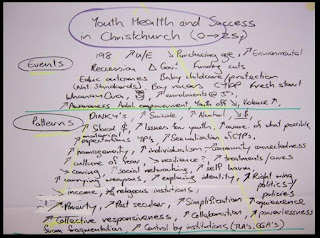 Youth Health and Success
in Christchurch (0→25)
Events
198 ↑ U/E ↓ Purchasing age, ↑ Environmental
Recession Δ Govt Funding cuts
Educ outcomes Baby childcare/protection
(Nat Standards) Boy racers CYPF Fresh start
Whanau Ora, ↑ enrolments @ 5's,
↑ Awareness Adol. empowerment, Youth off ↓, Violence ↑,
Patterns
↑ DINK+'s ↑ Suicide, ↑ Alcohol,
↑ Skool $, ↑ Issues for youth, ↑ aware of what possible,
↑ expectations ↑ communication
↑ homogeneity, ↑ individualism - Community connectedness
↑ culture of fear ↓ resilience? ↑ treatments/cures
↓ caring ↑ social networking, ↑ self harm,
↑ carrying weapons, ↑ exploring identity, ↑ Right wing
↓ income ↓ religious institutions, politics/
policies
↑ Poverty, ↑ Post secular ↑ Simplification ↑ powerlessness
↑ Collective responsiveness, ↑ Collaboration
↑ Control by institutions